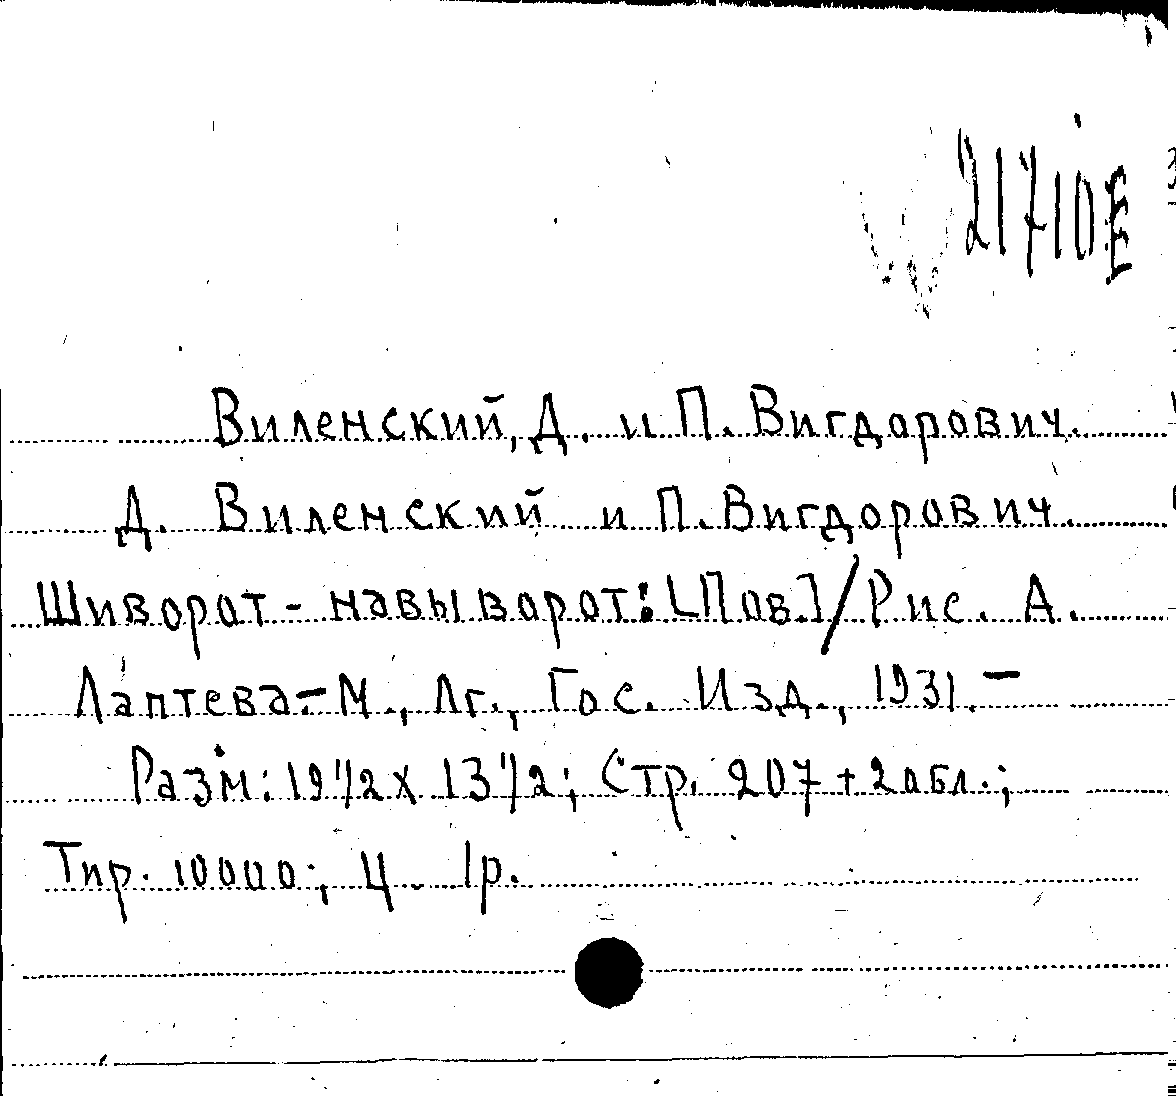 21710E
Виленский, Д. и П. Вигдорович.
Д. Виленский и П. Вигдорович.
Шиворот-навыворот: [Пов.] / Рис. А.
Лаптева.- М., Лг., Гос. Изд., 1931. –
Разм: 19 1/2 x 13 1/2; Стр. 207 + 2 абл.;
Тир. 10000; ц. 1р.